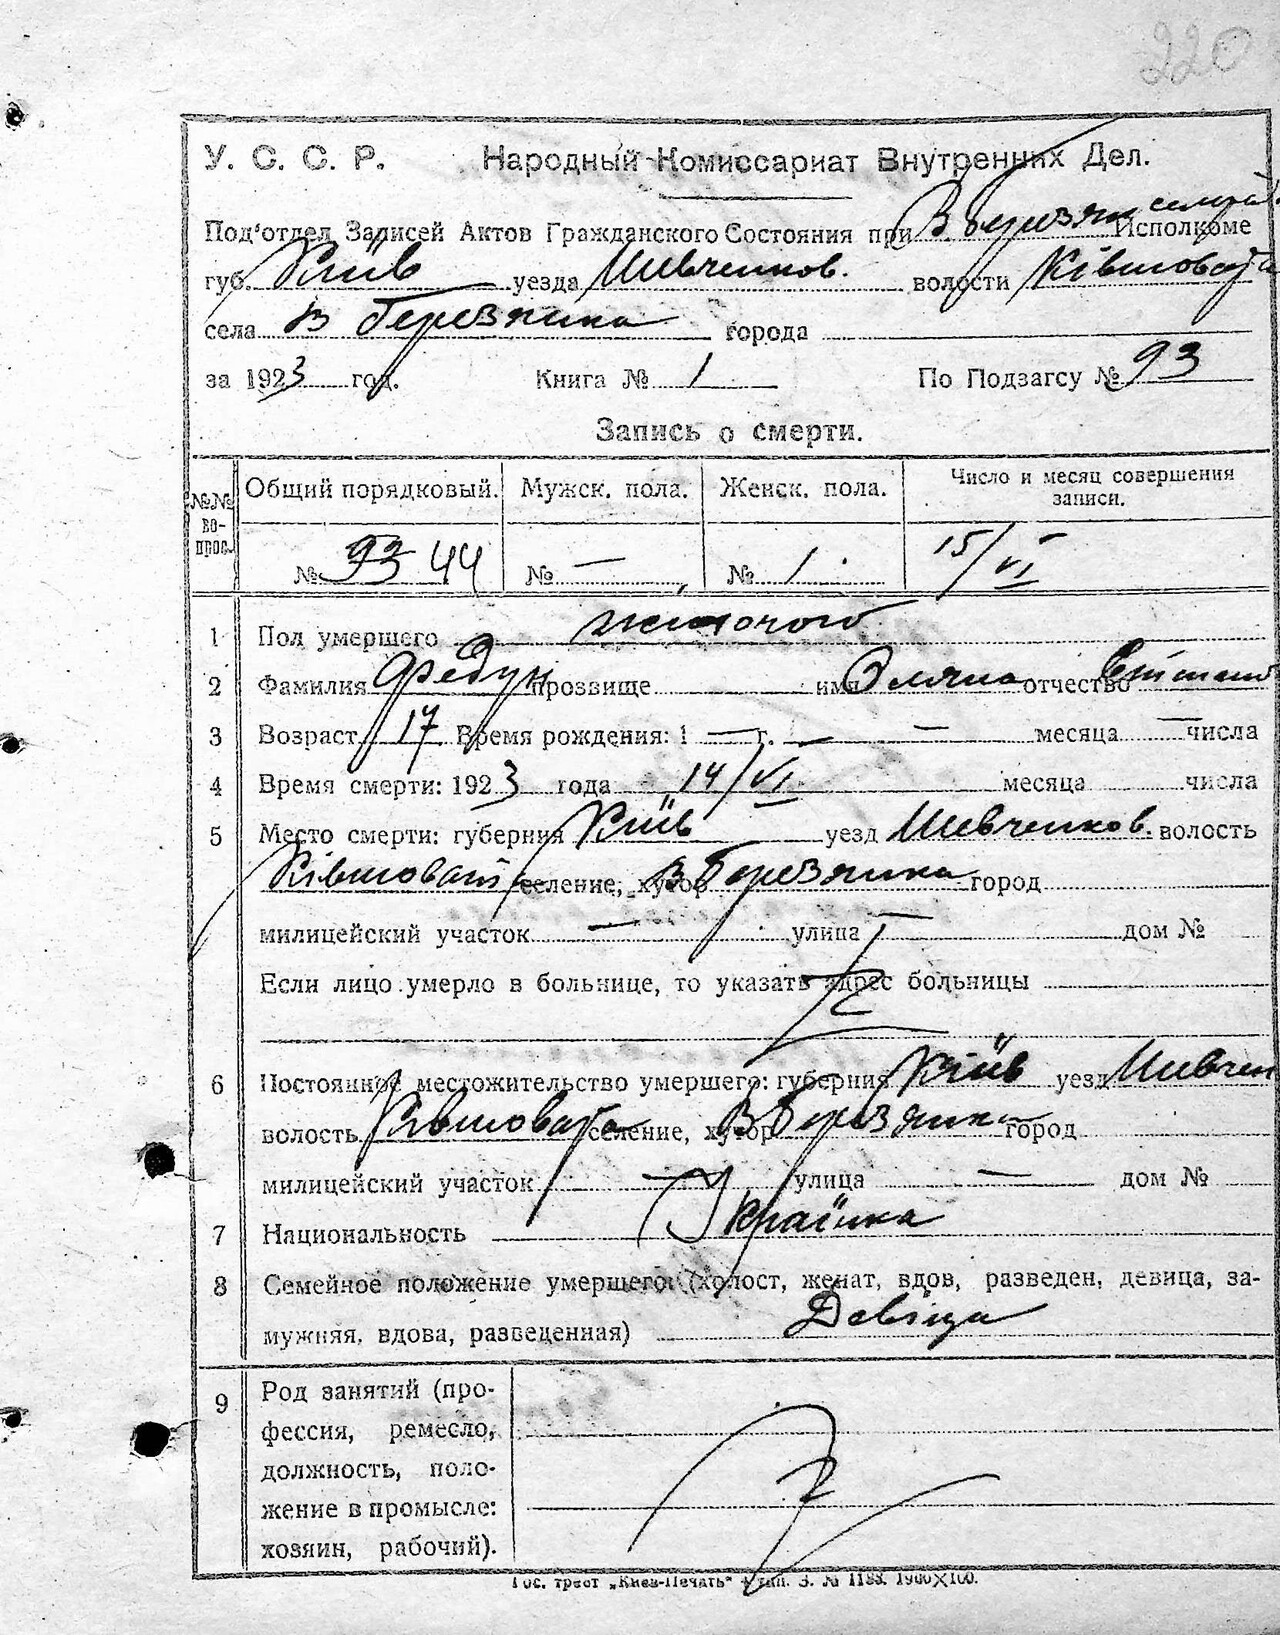 220
У. С. С. Р. Народный Комиссариат Внутренних Дел.
Под'отдел Записей Актов Гражданского Состояния при В Березян сельрад. Исполкоме
губ. Київ уезда Шевченков. волости Ківшовата
села В Березянка города
за 1923 год. Книга № 1 По Подзагсу № 93
Запись о смерти.
№№ вопрос. Общий порядковый. Мужск. пола. Женск. пола. Число и месяц совершения записи.
№ 93 44 № — № 1. 15/VI
1 Пол умершего жіночого
2 Фамилия Федун прозвище имя Оляна отчество
3 Возраст 17 Время рождения: 1 — г. — — месяца — числа
4 Время смерти: 1923 года 14/VI месяца числа
5 Место смерти: губерния Київ уезд Шевченков. волость
Ківшоват селение, хутор В Березянка город
милицейский участок — улица — дом №
Если лицо умерло в больнице, то указать адрес больницы
6 Постоянное местожительство умершего: губерния Київ уезд Шевчен
волость Ківшовата селение, хутор В Березянка город
милицейский участок — улица — дом №
7 Национальность Українка
8 Семейное положение умершего (холост, женат, вдов, разведен, девица, за-
мужняя, вдова, разведенная) Девіца
9 Род занятий (про-
фессия, ремесло,
должность, поло-
жение в промысле:
хозяин, рабочий).
Гос. трест „Киев-Печать“ 4 тип. З. № 1188. 1900×100.